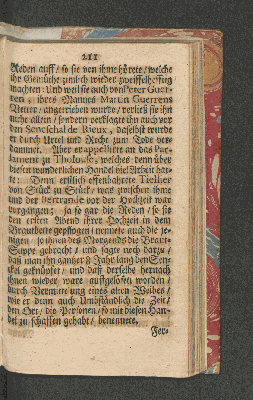 211
Reden auff / so sie von ihme hörete / welche
ihr Gemüthe zimlich wieder zweiffelhefftig
machten: Und weil sie auch von Peter Guer-
ren / ihres Mannes Martin Guerrens
Vetter / angetrieben wurde / verließ sie ihn
nicht allein / sondern verklagte ihn auch vor
den Seneschal de Rieux, daselbst wurde
er durch Urtel und Recht zum Tode ver-
dammet. Aber er appellirte an das Par-
lament zu Tholouse, welches denn über
diesen wunderlichen Handel viel Arbeit hat-
te: Denn erstlich offenbahrete Tielher
von Stück zu Stück / was zwischen ihme
und der Bertrande vor der Hochzeit war
vorgangen; ja so gar die Reden / so sie
den ersten Abend ihrer Hochzeit in dem
Brautbette gepflogen / nennete auch die je-
nigen / so ihnen des Morgends die Braut-
Suppe gebracht / und sagte noch darzu /
daß man ihn gantzer 8 Jahr lang den Sen-
ckel geknüpffet / und daß derselbe hernach
ihnen wieder wäre auffgelöset worden /
durch Vermittelung eines alten Weibes /
wie er denn auch Umbständlich die Zeit /
den Ort / die Personen / so mit diesen Han-
del zu schaffen gehabt / benennete.
Fer-